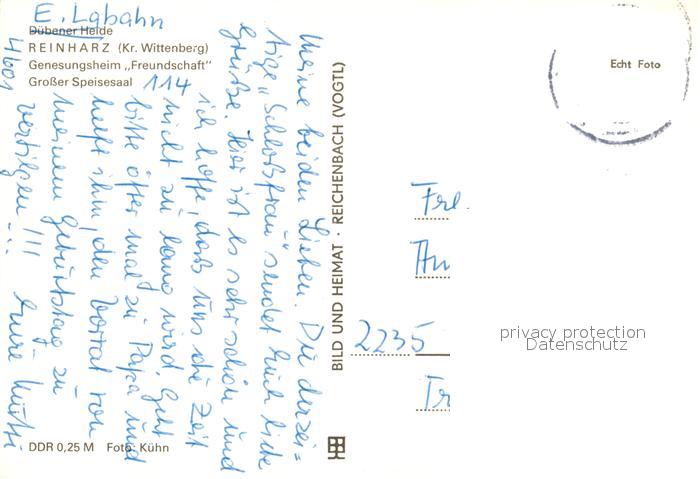 E. Labahn
Dübener Heide
REINHARZ (Kr. Wittenberg)
Genesungsheim „Freundschaft"
Großer Speisesaal 114
4601
Meine beiden Lieben. Die derzei=
tige „Schloßfrau" sendet Euch liebe
Grüße. Hier ist es sehr schön und
ich hoffe, daß uns die Zeit
nicht zu lang wird. Geht
bitte öfter mal zu Papa und
helft ihm, den Vorrat von
meinem Geburtstag zu
vertilgen!!!
Eure Mutti
DDR 0,25 M Foto: Kühn
BILD UND HEIMAT · REICHENBACH (VOGTL)
Echt Foto
Frl.
An
2235
Tr
privacy protection
Datenschutz